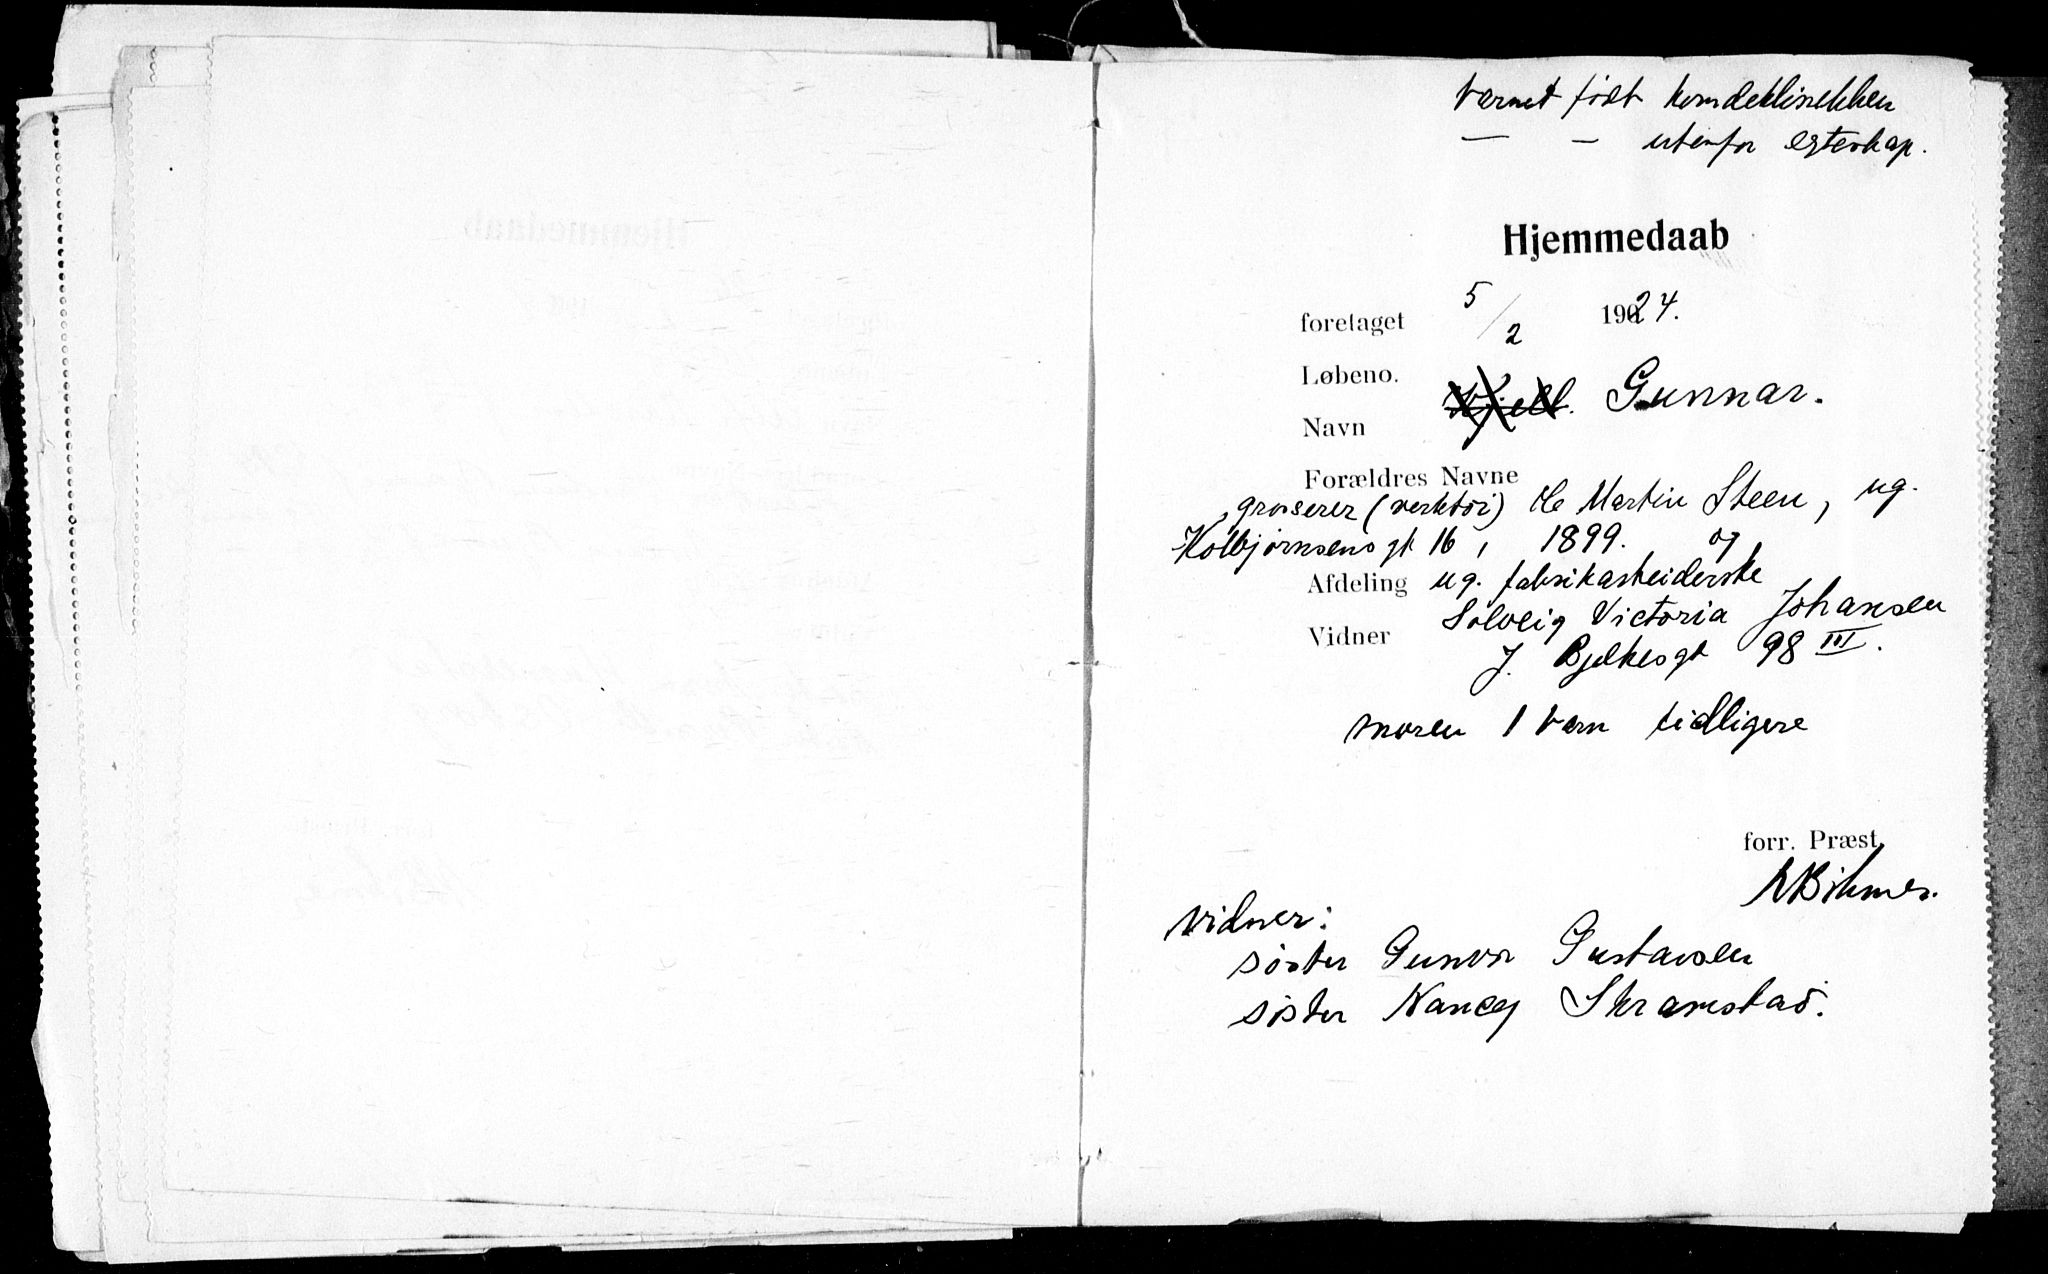 barnet født kvindeklinikken
— — utenfor egteskap.
Hjemmedaab
foretaget 5/2 1924.
Løbeno.
Navn Kjell. Gunnar.
Forældres Navne
grosserer (verktøi) Martin Steen, ug.
Kolbjørnsens gt 16, 1899. og
Afdeling ug. fabrikarbeiderske
Solveig Victoria Johansen
Vidner
J. Bjelkesgt 98 III.
moren 1 barn tidligere
forr. Præst
vidner:
søster Gunvor Gustavsen
søster Nancy Skramstad.